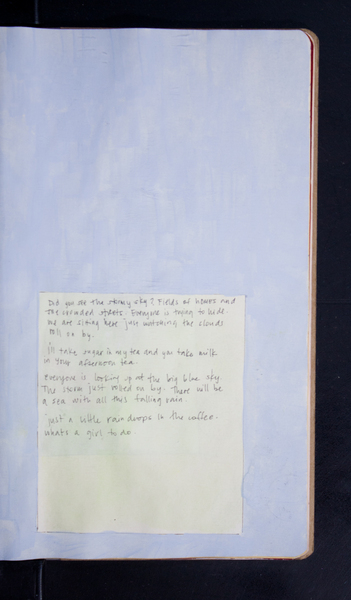 Did you see the stormy sky? Fields of homes and
the crowded streets. Everyone is trying to hide.
we are sitting here just watching the clouds
roll on by.
I'll take sugar in my tea and you take milk
in your afternoon tea.
everyone is looking up at the big blue sky
The storm just rolled on by. There will be
a sea with all this falling rain.
just a little rain drops in the coffee.
whats a girl to do.